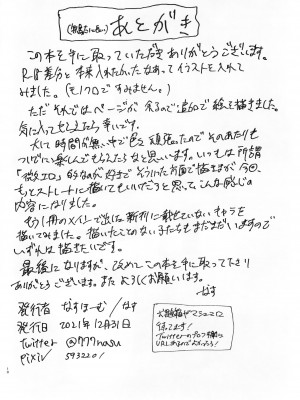 (無駄に長い) あとがき
この本を手に取っていただき ありがとうございます。
R-18差分と 本来入れたかったなあってイラストを入れて
みました。(モノクロですみません。)
ただ それではページが 余るので追加で絵を描きました。
気に入ってもらえたら幸いです。
大して時間が無い中で色々頑張ったので そのあたりも
ついでに楽しんでもらえたらなと思います。いつもは所謂
「微エロ」的なのが好きで そういった方面で描きますが 今回
もっとストレートに描いてもいいだろうと思って、こんな感じの
内容になりました。
もう1冊のメインで出た新刊に載せていないキャラを
描いてみました。描いたことのない子たちもまだまだいますので
いずれは描きたいです。
最後になりますが、改めて この本を手に取って下さり
ありがとうございます。また よろしくお願いします。
なす
発行者 なすほーむ/なす
発行日 2021年12月31日
Twitter @777nasu
pixiv 5932201
待ってます!
Twitterのプロフ欄に
URLあるのでよかったら!